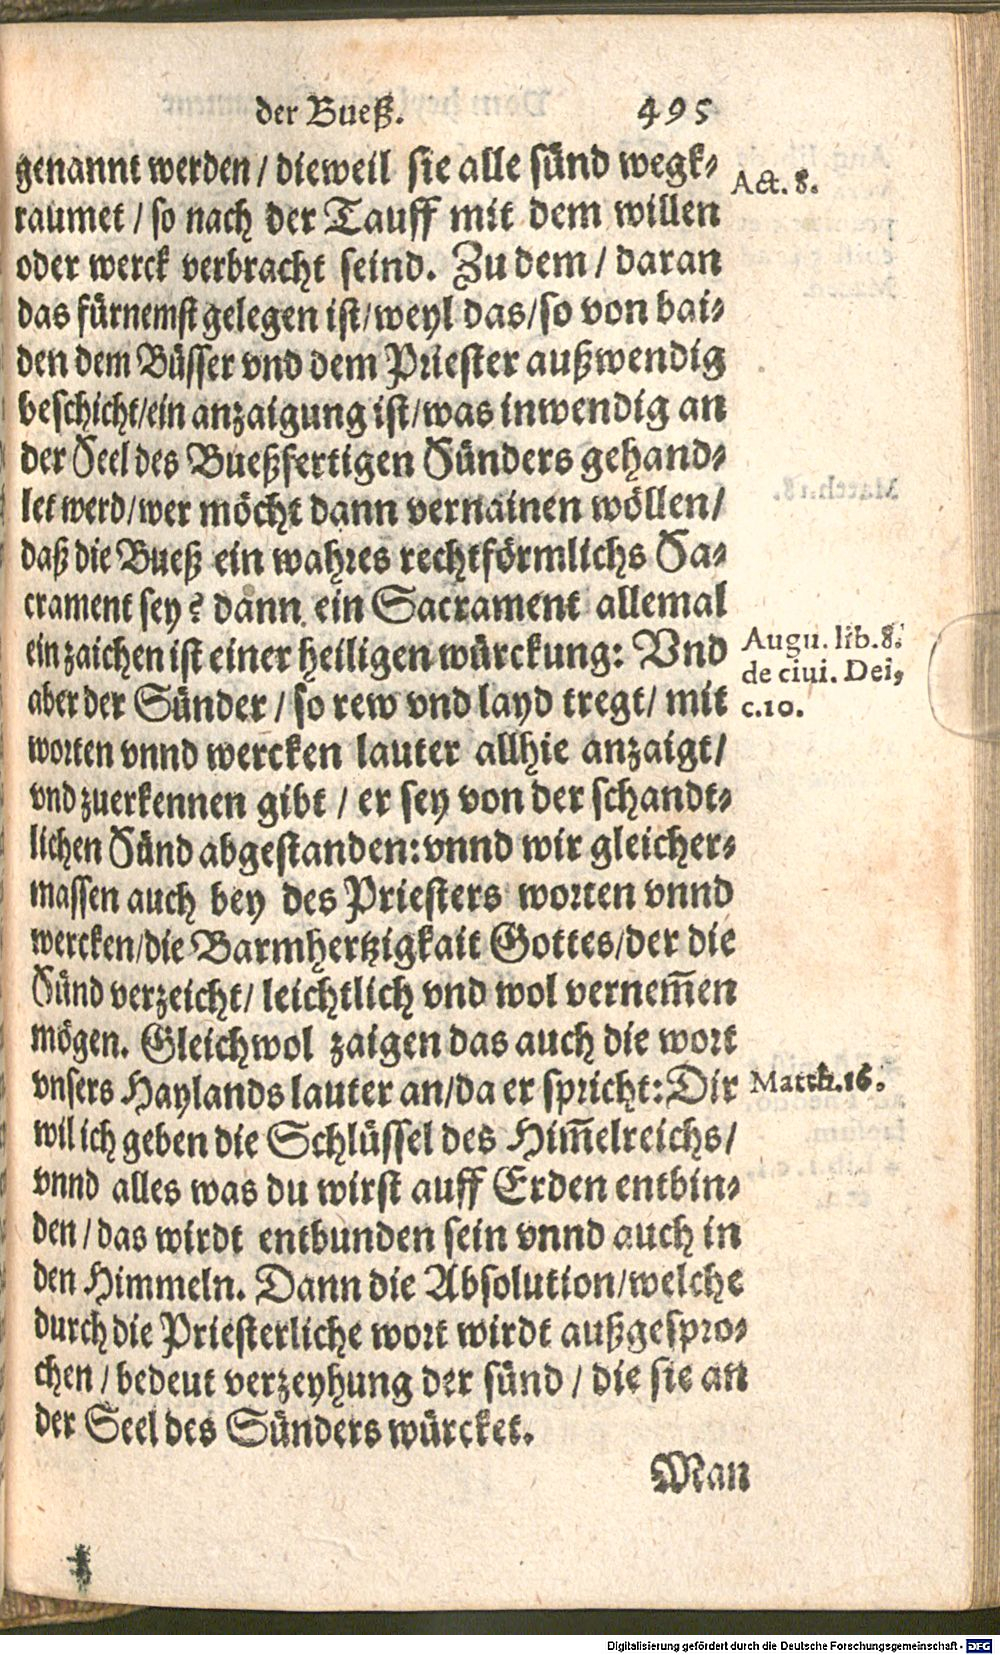 der Bueß. 495
genannt werden / dieweil sie alle sünd wegk⸗
Act. 8.
raumet / so nach der Tauff mit dem willen
oder werck verbracht seind. Zu dem / daran
das fürnemst gelegen ist/weyl das/so von bai⸗
den dem Büsser vnd dem Priester außwendig
beschicht/ein anzaigung ist/was inwendig an
der Seel des Bueßfertigen Sünders gehand⸗
let werd/wer möcht dann vernainen wöllen/
daß die Bueß ein wahres rechtförmlichs Sa⸗
crament sey? dann ein Sacrament allemal
ein zaichen ist einer heiligen würckung: Vnd
Augu. lib.8.
de ciui. Dei,
c.10.
aber der Sünder / so rew vnd layd tregt/ mit
worten vnnd wercken lauter allhie anzaigt/
vnd zuerkennen gibt / er sey von der schandt⸗
lichen Sünd abgestanden: vnnd wir gleicher⸗
massen auch bey des Priesters worten vnnd
wercken/die Barmhertzigkait Gottes/der die
Sünd verzeicht/ leichtlich vnd wol vernem̃en
mögen. Gleichwol zaigen das auch die wort
vnsers Haylands lauter an/da er spricht: Dir
Matth.16.
wil ich geben die Schlüssel des Him̃elreichs/
vnnd alles was du wirst auff Erden entbin⸗
den / das wirdt entbunden sein vnnd auch in
den Himmeln. Dann die Absolution/welche
durch die Priesterliche wort wirdt außgespro⸗
chen / bedeut verzeyhung der sünd / die sie an
der Seel des Sünders würcket.
Man
Digitalisierung gefördert durch die Deutsche Forschungsgemeinschaft - DFG